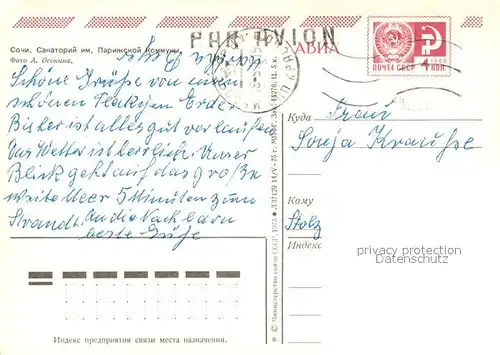 PAR AVION
АВИА
Сочи. Санаторий им. Парижской Коммуны.
Фото А. Осокина.
Schöne Grüße von einem
schönen Fleckchen Erde.
Bisher ist alles gut verlaufen.
Das Wetter ist herrlich. Unser
Blick geht auf das große
weite Meer 5 Minuten zum
Strand. An die Nachbarn
beste Grüße
ПОЧТА СССР
1966
4 КОП.
Куда Frau
Sonja Krauße
Кому
Stolz
Индекс
privacy protection
AnsichtskartenVersand.com
© Министерство связи СССР, 1975
Индекс предприятия связи места назначения.